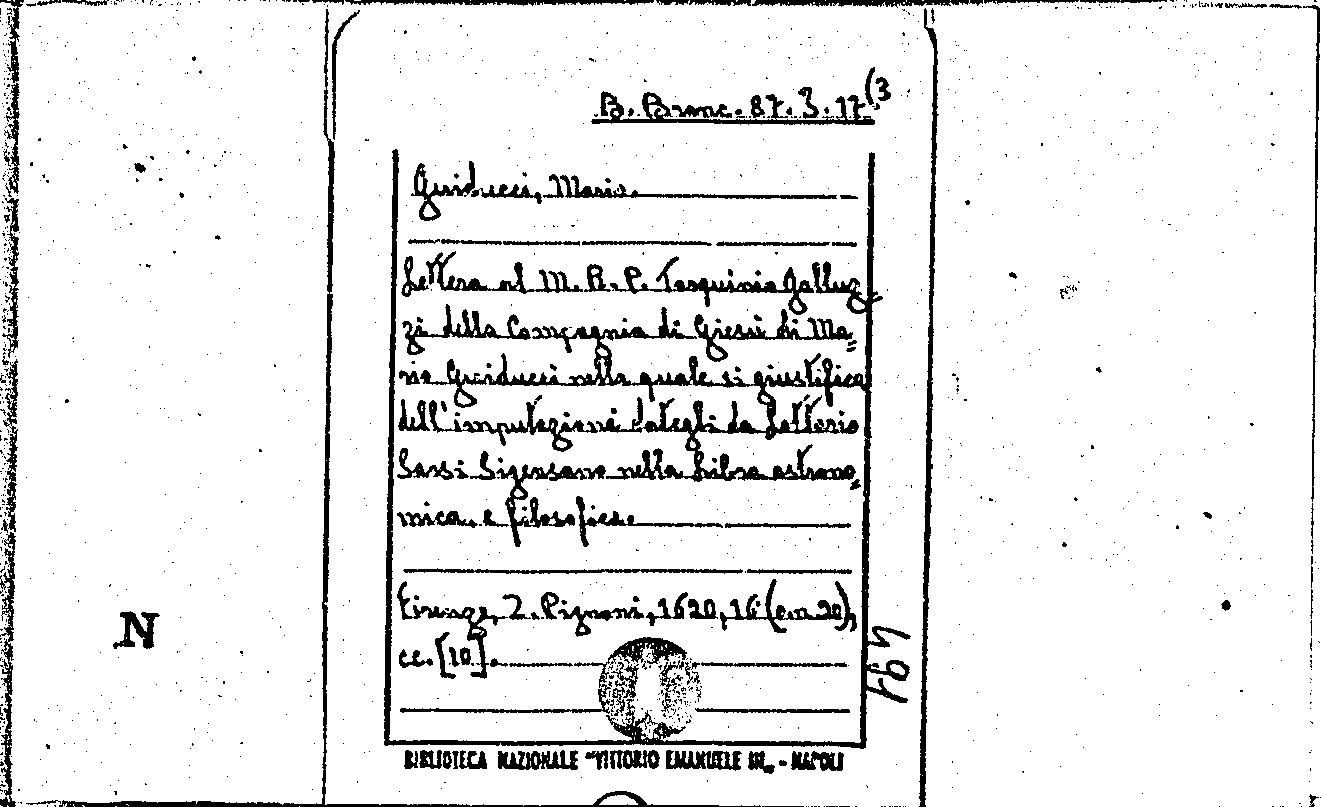 B. Branc. 87. J. 17(3
Guiducci, Mario.
Lettera al M. R. P. Tarquinio Galluz=
zi della Compagnia di Giesù di Ma=
rio Guiducci nella quale si giustifica
dell'imputazioni dategli da Lottario
Sarsi Sigensano nella Libra astrono=
mica e filosofica.
Firenze, Z. Pignoni, 1620, 16 (cm 20),
cc. [10].
499
N
BIBLIOTECA NAZIONALE "VITTORIO EMANUELE III„ - NAPOLI